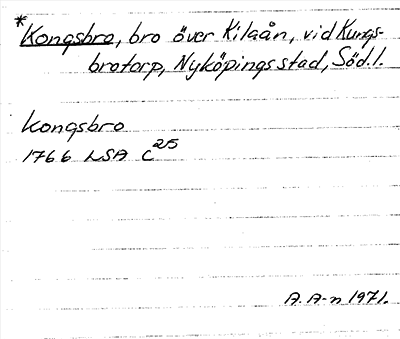 *Kongsbro, bro över Kilaån, vid Kungs-
brotorp, Nyköpings stad, Södl.
Kongsbro
1766 LSA C25
A. A-n 1971.